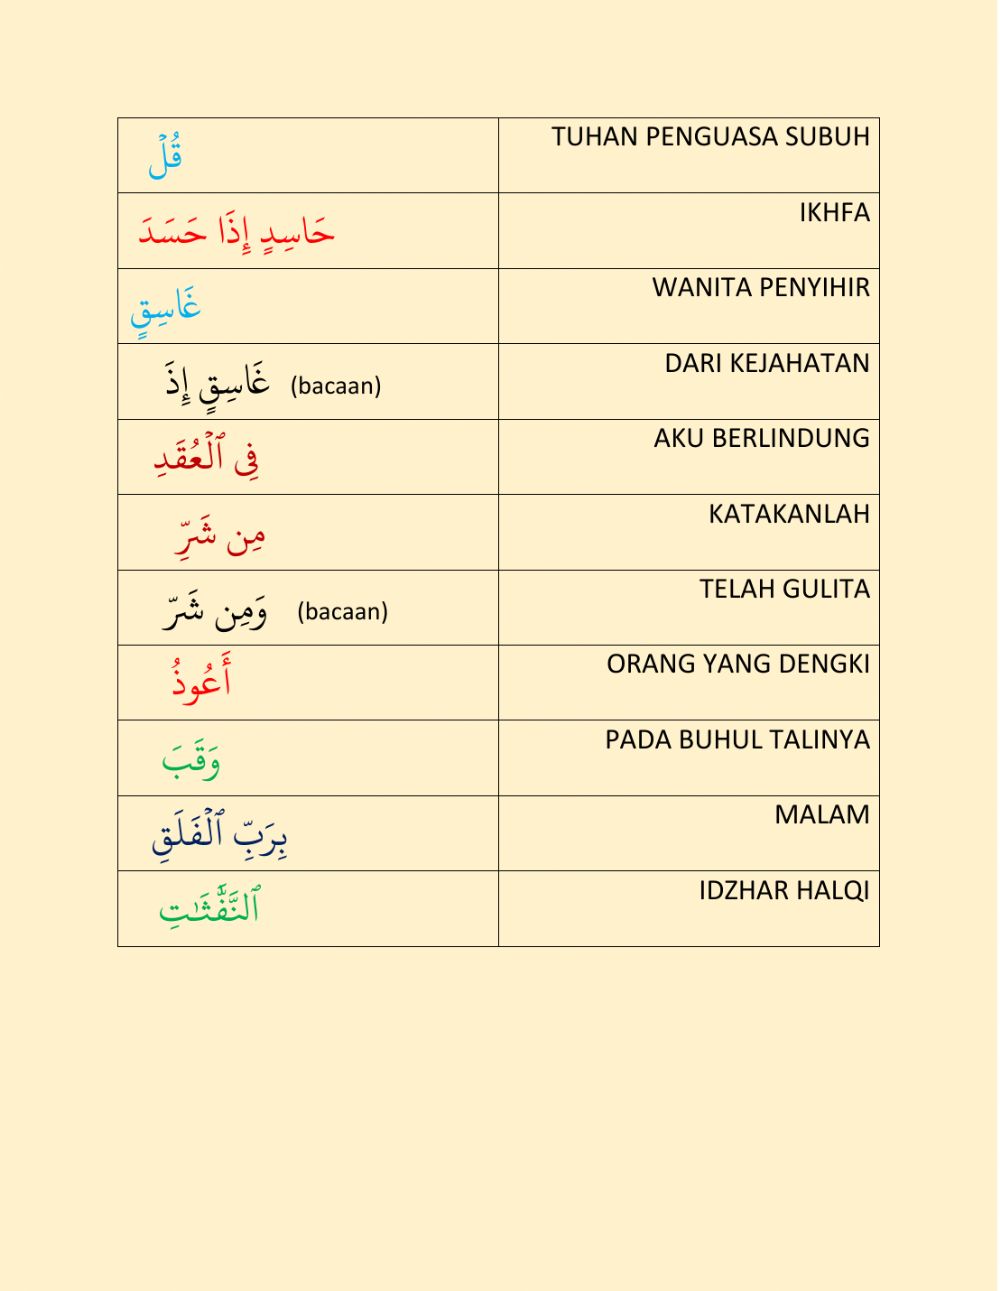 قُلۡ
TUHAN PENGUASA SUBUH
حَاسِدٍ إِذَا حَسَدَ
IKHFA
غَاسِقٍ
WANITA PENYIHIR
غَاسِقٍ إِذَ (bacaan)
DARI KEJAHATAN
فِى ٱلۡعُقَدِ
AKU BERLINDUNG
مِن شَرِّ
KATAKANLAH
وَمِن شَرّ (bacaan)
TELAH GULITA
أَعُوذُ
ORANG YANG DENGKI
وَقَبَ
PADA BUHUL TALINYA
بِرَبِّ ٱلۡفَلَقِ
MALAM
ٱلنَّفَّٰثَٰتِ
IDZHAR HALQI